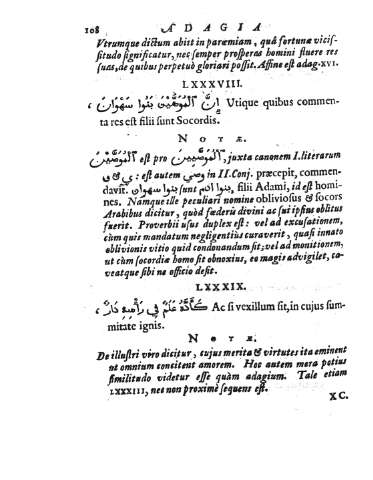 108 ADAGIA
Vtrumque dictum abiit in parœmiam, quâ fortunæ vicis-
situdo significatur, nec semper prosperas homini fluere res
suas, de quibus perpetuò gloriari possit. Affine est adag. XVI.
LXXXVIII.
إِنَّ الْمُوَصَّيْنَ بَنُوا سَهْوَانَ، Utique quibus commen-
ta res est filii sunt Socordis.
NOTÆ.
الموصين est pro الموصيين, juxta canonem I. literarum
و & ي: est autem وصي in II. Conj. præcepit, commen-
davit. بنوا سهوان sunt بنوا ادم filii Adami, id est homi-
nes. Namque ille peculiari nomine obliviosus & socors
Arabibus dicitur, quòd fœderis divini ac sui ipsius oblitus
fuerit. Proverbii usus duplex est: vel ad excusationem,
cùm quis mandatum negligentiùs curaverit, quasi innato
oblivionis vitio quid condonandum sit; vel ad monitionem,
ut cùm socordiæ homo sit obnoxius, eo magis advigilet, ca-
veatque sibi ne officio desit.
LXXXIX.
كَأَنَّهُ عَلَمٌ فِي رَأْسِهِ نَارٌ، Ac si vexillum sit, in cujus sum-
mitate ignis.
NOTÆ.
De illustri viro dicitur, cujus merita & virtutes ita eminent
ut omnium concitent amorem. Hoc autem mera potius
similitudo videtur esse quàm adagium. Tale etiam
LXXXIII, nec non proximè sequens est.
XC.